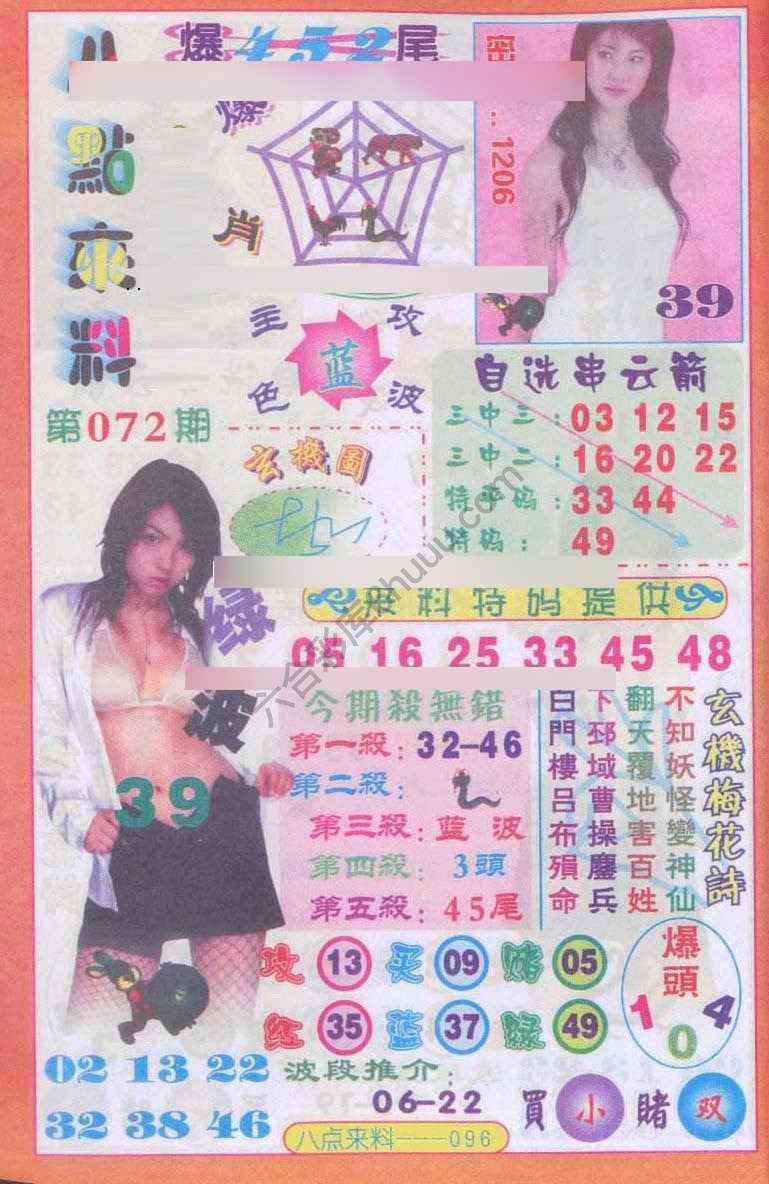 八點來料
爆452尾
爆肖
1206
39
主攻
色波
蓝
第072期
玄機圖
自选串云箭
三中三：03 12 15
三中二：16 20 22
特平码：33 44
特码：49
來料特码提供
05 16 25 33 45 48
绿波
39
今期殺無錯
第一殺：32-46
第二殺：
第三殺：蓝波
第四殺：3頭
第五殺：45尾
玄機梅花詩
不知妖怪變神仙
翻天覆地害百姓
下邳域曹操鏖兵
白門樓吕布殞命
攻 13 买 09 赌 05
红 35 蓝 37 绿 49
爆頭
1 0 4
02 13 22
32 38 46
波段推介：
06-22
買 小 賭 双
八点来料---096
六合彩库ahuuu.com